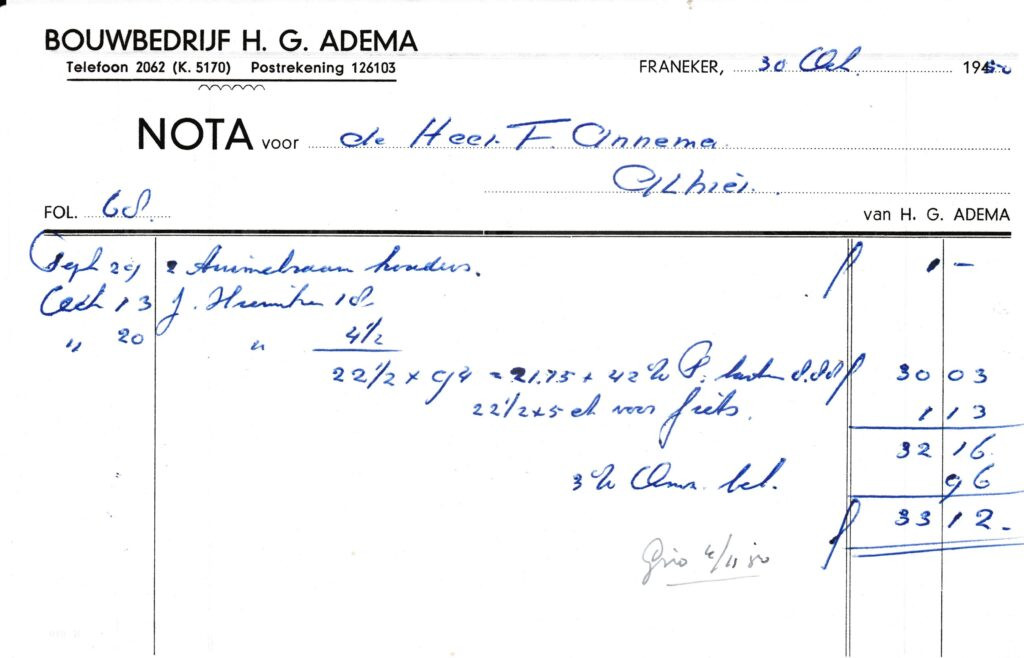 BOUWBEDRIJF H. G. ADEMA
Telefoon 2062 (K. 5170) Postrekening 126103
FRANEKER, 30 Oct. 1950
NOTA voor de Heer F. Annema
Alhier.
FOL. 68. van H. G. ADEMA
Sept 29 2 houders. f 1 –
Oct 13 J. 18
" 20 " 4 1/2
22 1/2 x 94 = 21.75 + 42 % f 30 03
22 1/2 x 5 ct voor fiets. 1 13
32 16
3 % Oms. bel. 96
f 33 12.
Giro 4/11 50